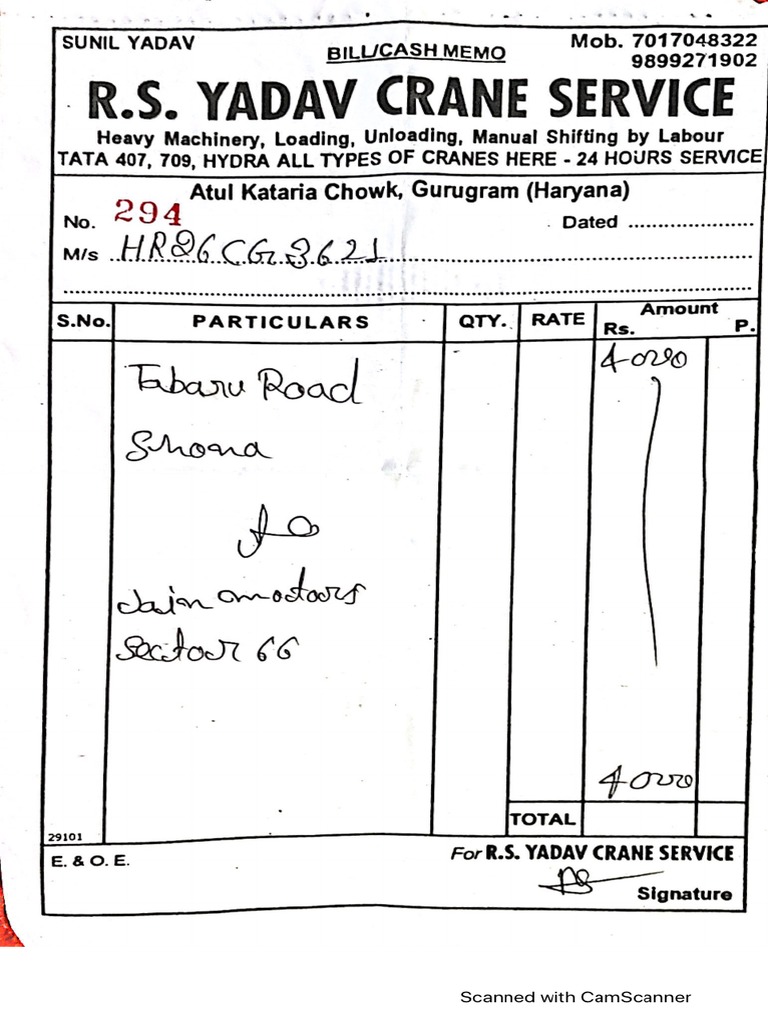 SUNIL YADAV
BILL/CASH MEMO
Mob. 7017048322
9899271902
R.S. YADAV CRANE SERVICE
Heavy Machinery, Loading, Unloading, Manual Shifting by Labour
TATA 407, 709, HYDRA ALL TYPES OF CRANES HERE - 24 HOURS SERVICE
Atul Kataria Chowk, Gurugram (Haryana)
No. 294 Dated ....................
M/s HR26CG3621
S.No. PARTICULARS QTY. RATE Amount
Rs. P.
4000
Tabaru Road
Shona
to
Jain motors
Sector 66
4000
TOTAL
29101
E. & O. E.
For R.S. YADAV CRANE SERVICE
Signature
Scanned with CamScanner